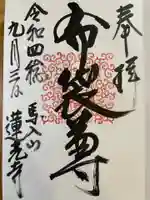 奉拝
布袋尊
令和四年
九月三日
馬入山
蓮光寺